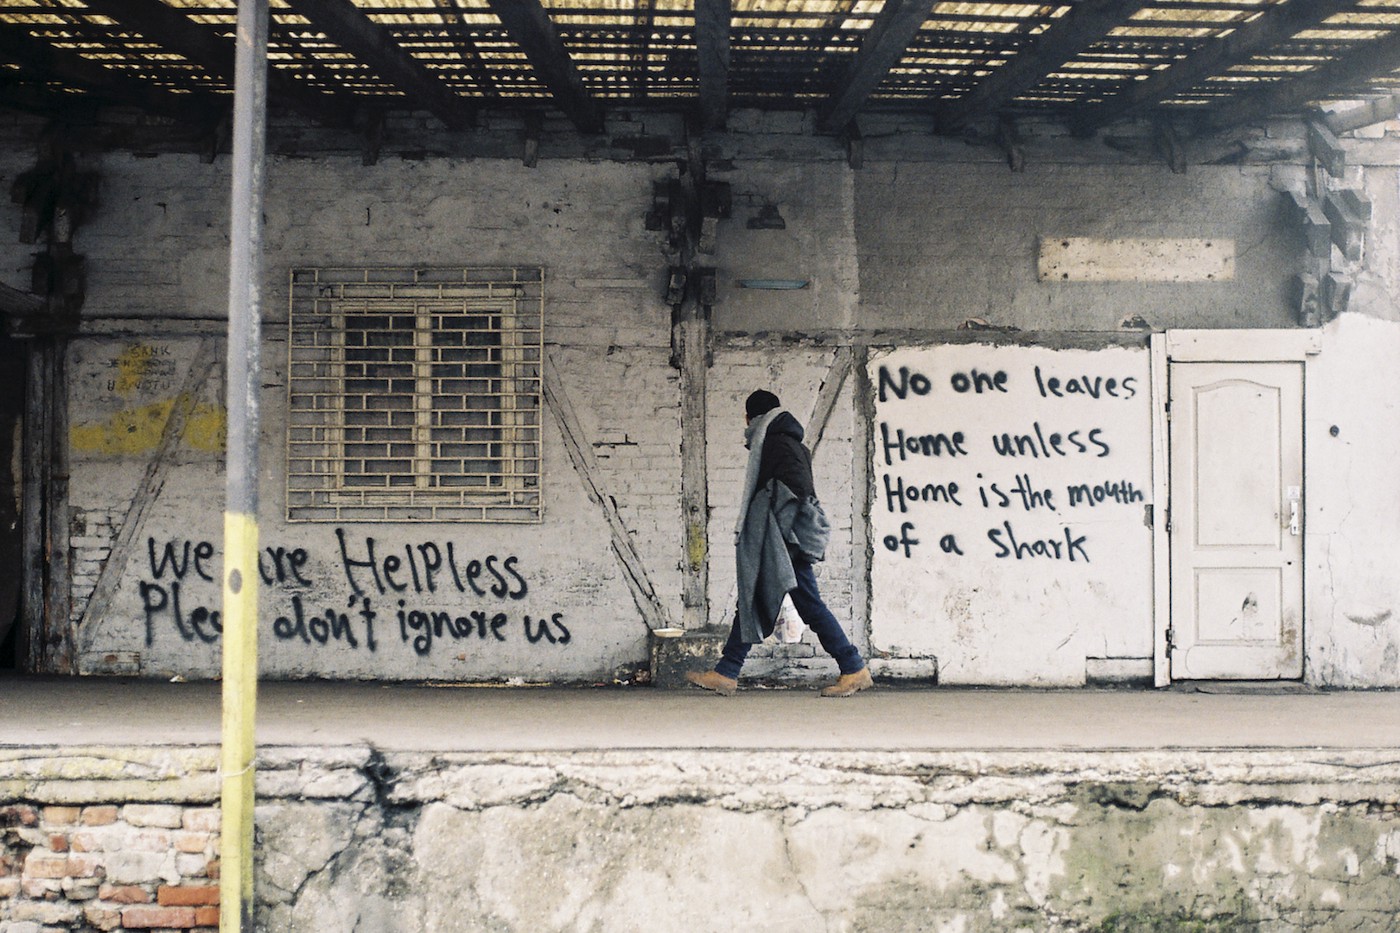 We are HelPless
Please don't ignore us
No one leaves
Home unless
Home is the mouth
of a Shark